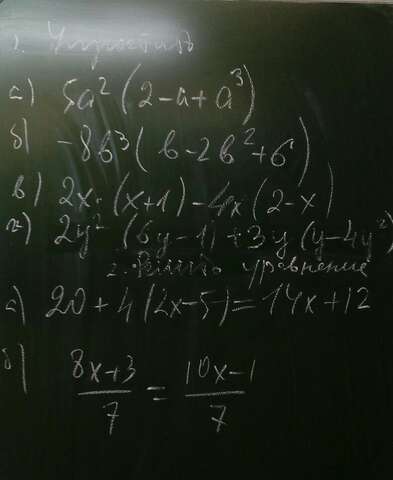 1. Упростить
а) 5a² (2-a+a³)
б) -8b³ (b-2b²+6)
в) 2x·(x+1)-4x(2-x)
г) 2y² (6y-1)+3y(y-4y²)
2. Решить уравнение
а) 20+4(2x-5)=14x+12
б) 8x+3/7 = 10x-1/7